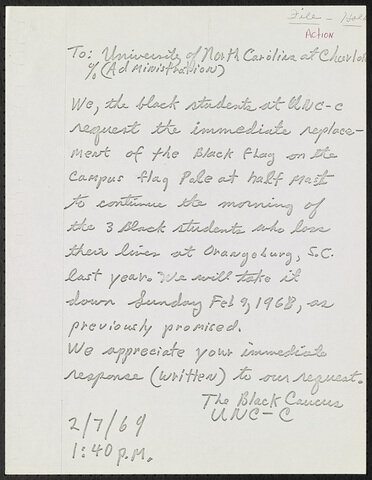 File - Hold
Action
To: University of North Carolina at Charlotte
% (Administration)
We, the black students at UNC-C
request the immediate replace-
ment of the Black flag on the
Campus flag Pole at half mast
to continue the morning of
the 3 Black students who loss
their lives at Orangeburg, S.C.
last year. We will take it
down Sunday Feb 9, 1968, as
previously promised.
We appreciate your immediate
response (written) to our request.
The Black Caucus
UNC-C
2/7/69
1:40 p.m.